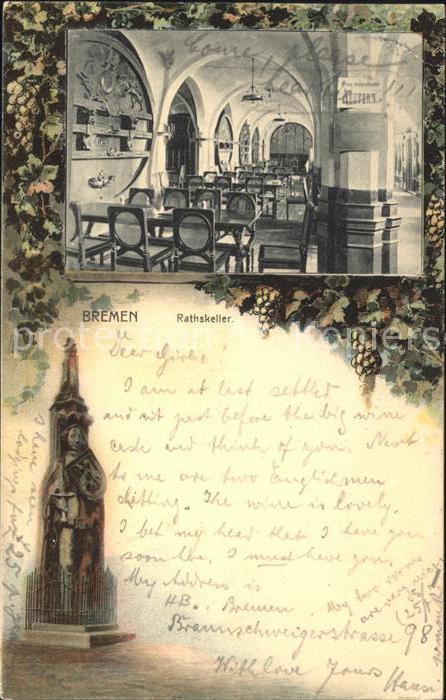 Come please
Austern
BREMEN Rathskeller.
Dear Girlie!
I am at last settled
and sit just before the big wine
cask and think of you. Next
to me are two Englishmen
chitting. The wine is lovely.
I bet my head that I have you
soon here. I must have you.
My Address is
HB. Bremen
Braunschweigerstrasse 98
With Love Yours
Hansi
My two rooms
are very nice
I have seen